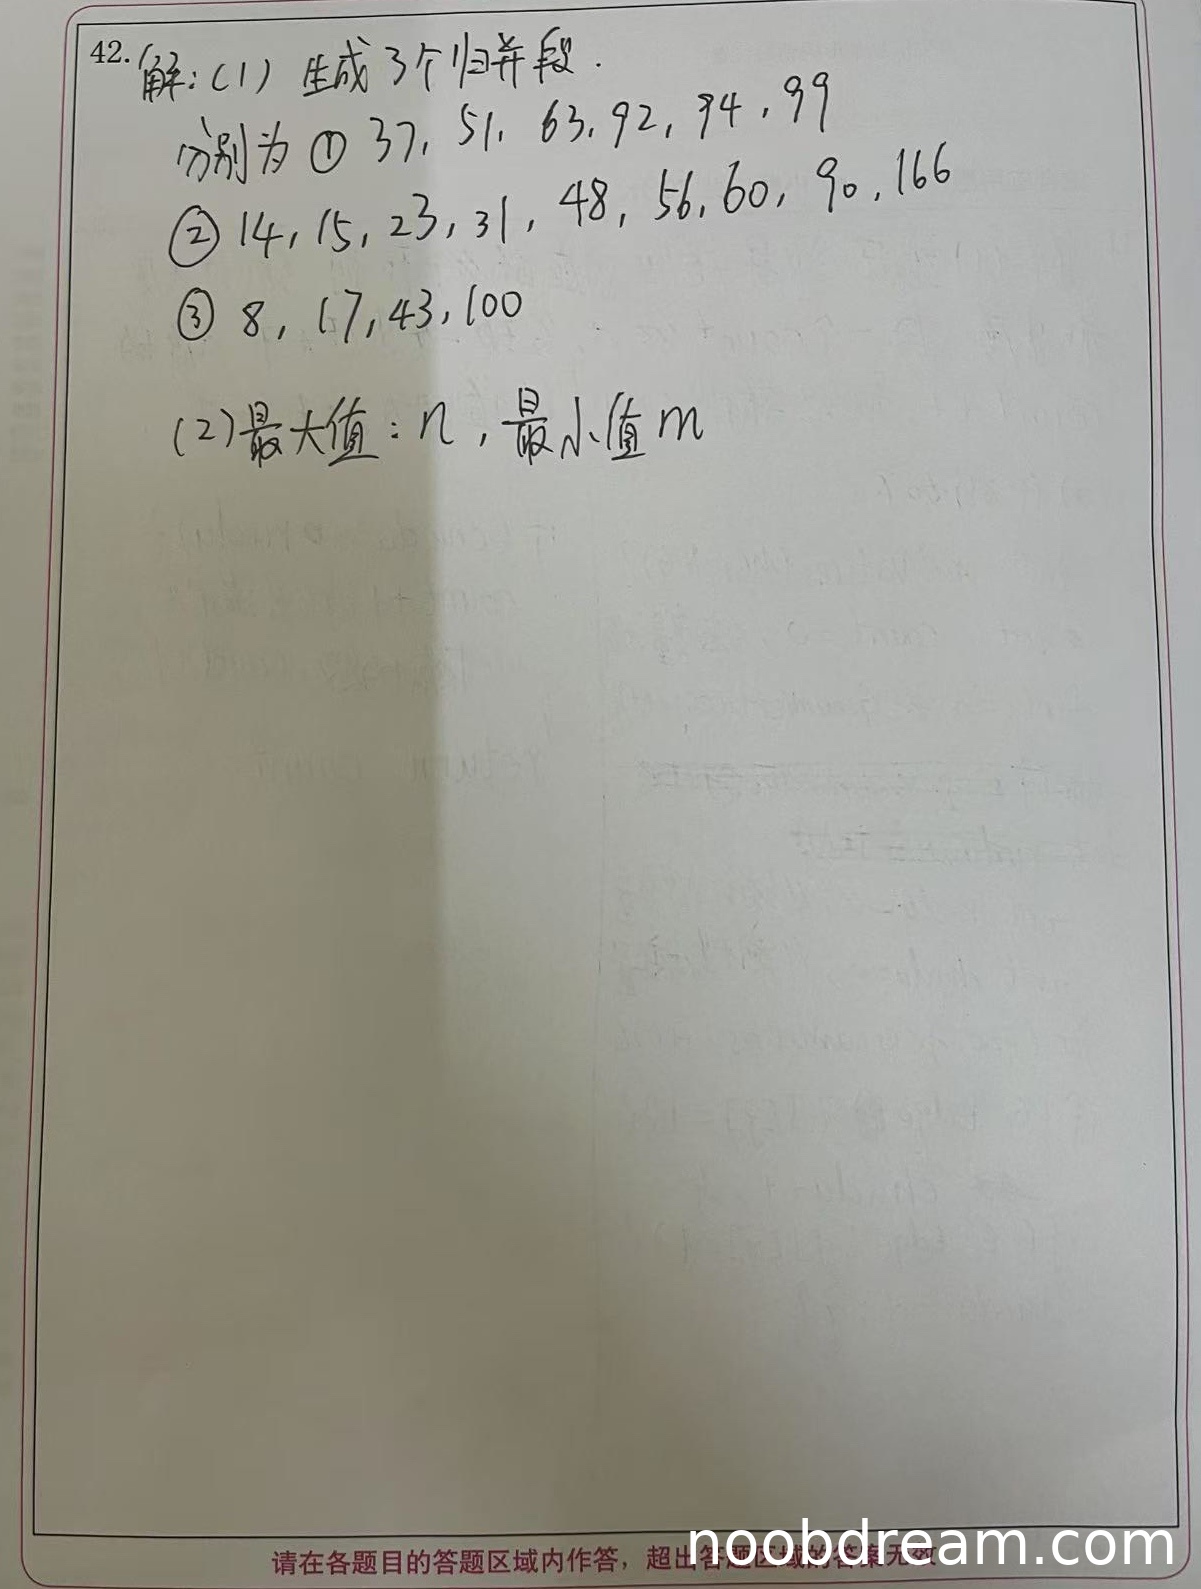 42. 解：(1) 生成3个归并段.
分别为 ① 37, 51, 63, 92, 94, 99
② 14, 15, 23, 31, 48, 56, 60, 90, 166
③ 8, 17, 43, 100
(2) 最大值：n, 最小值 m
请在各题目的答题区域内作答，超出答题区域的答案无效
noobdream.com